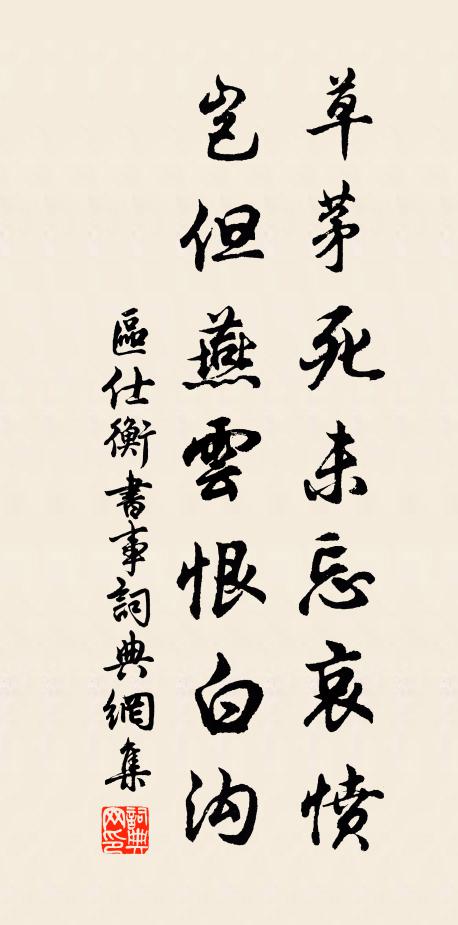 草茅死未忘哀憤
豈但燕雲恨白沟
區仕衡書事詞典網集
詞典网印